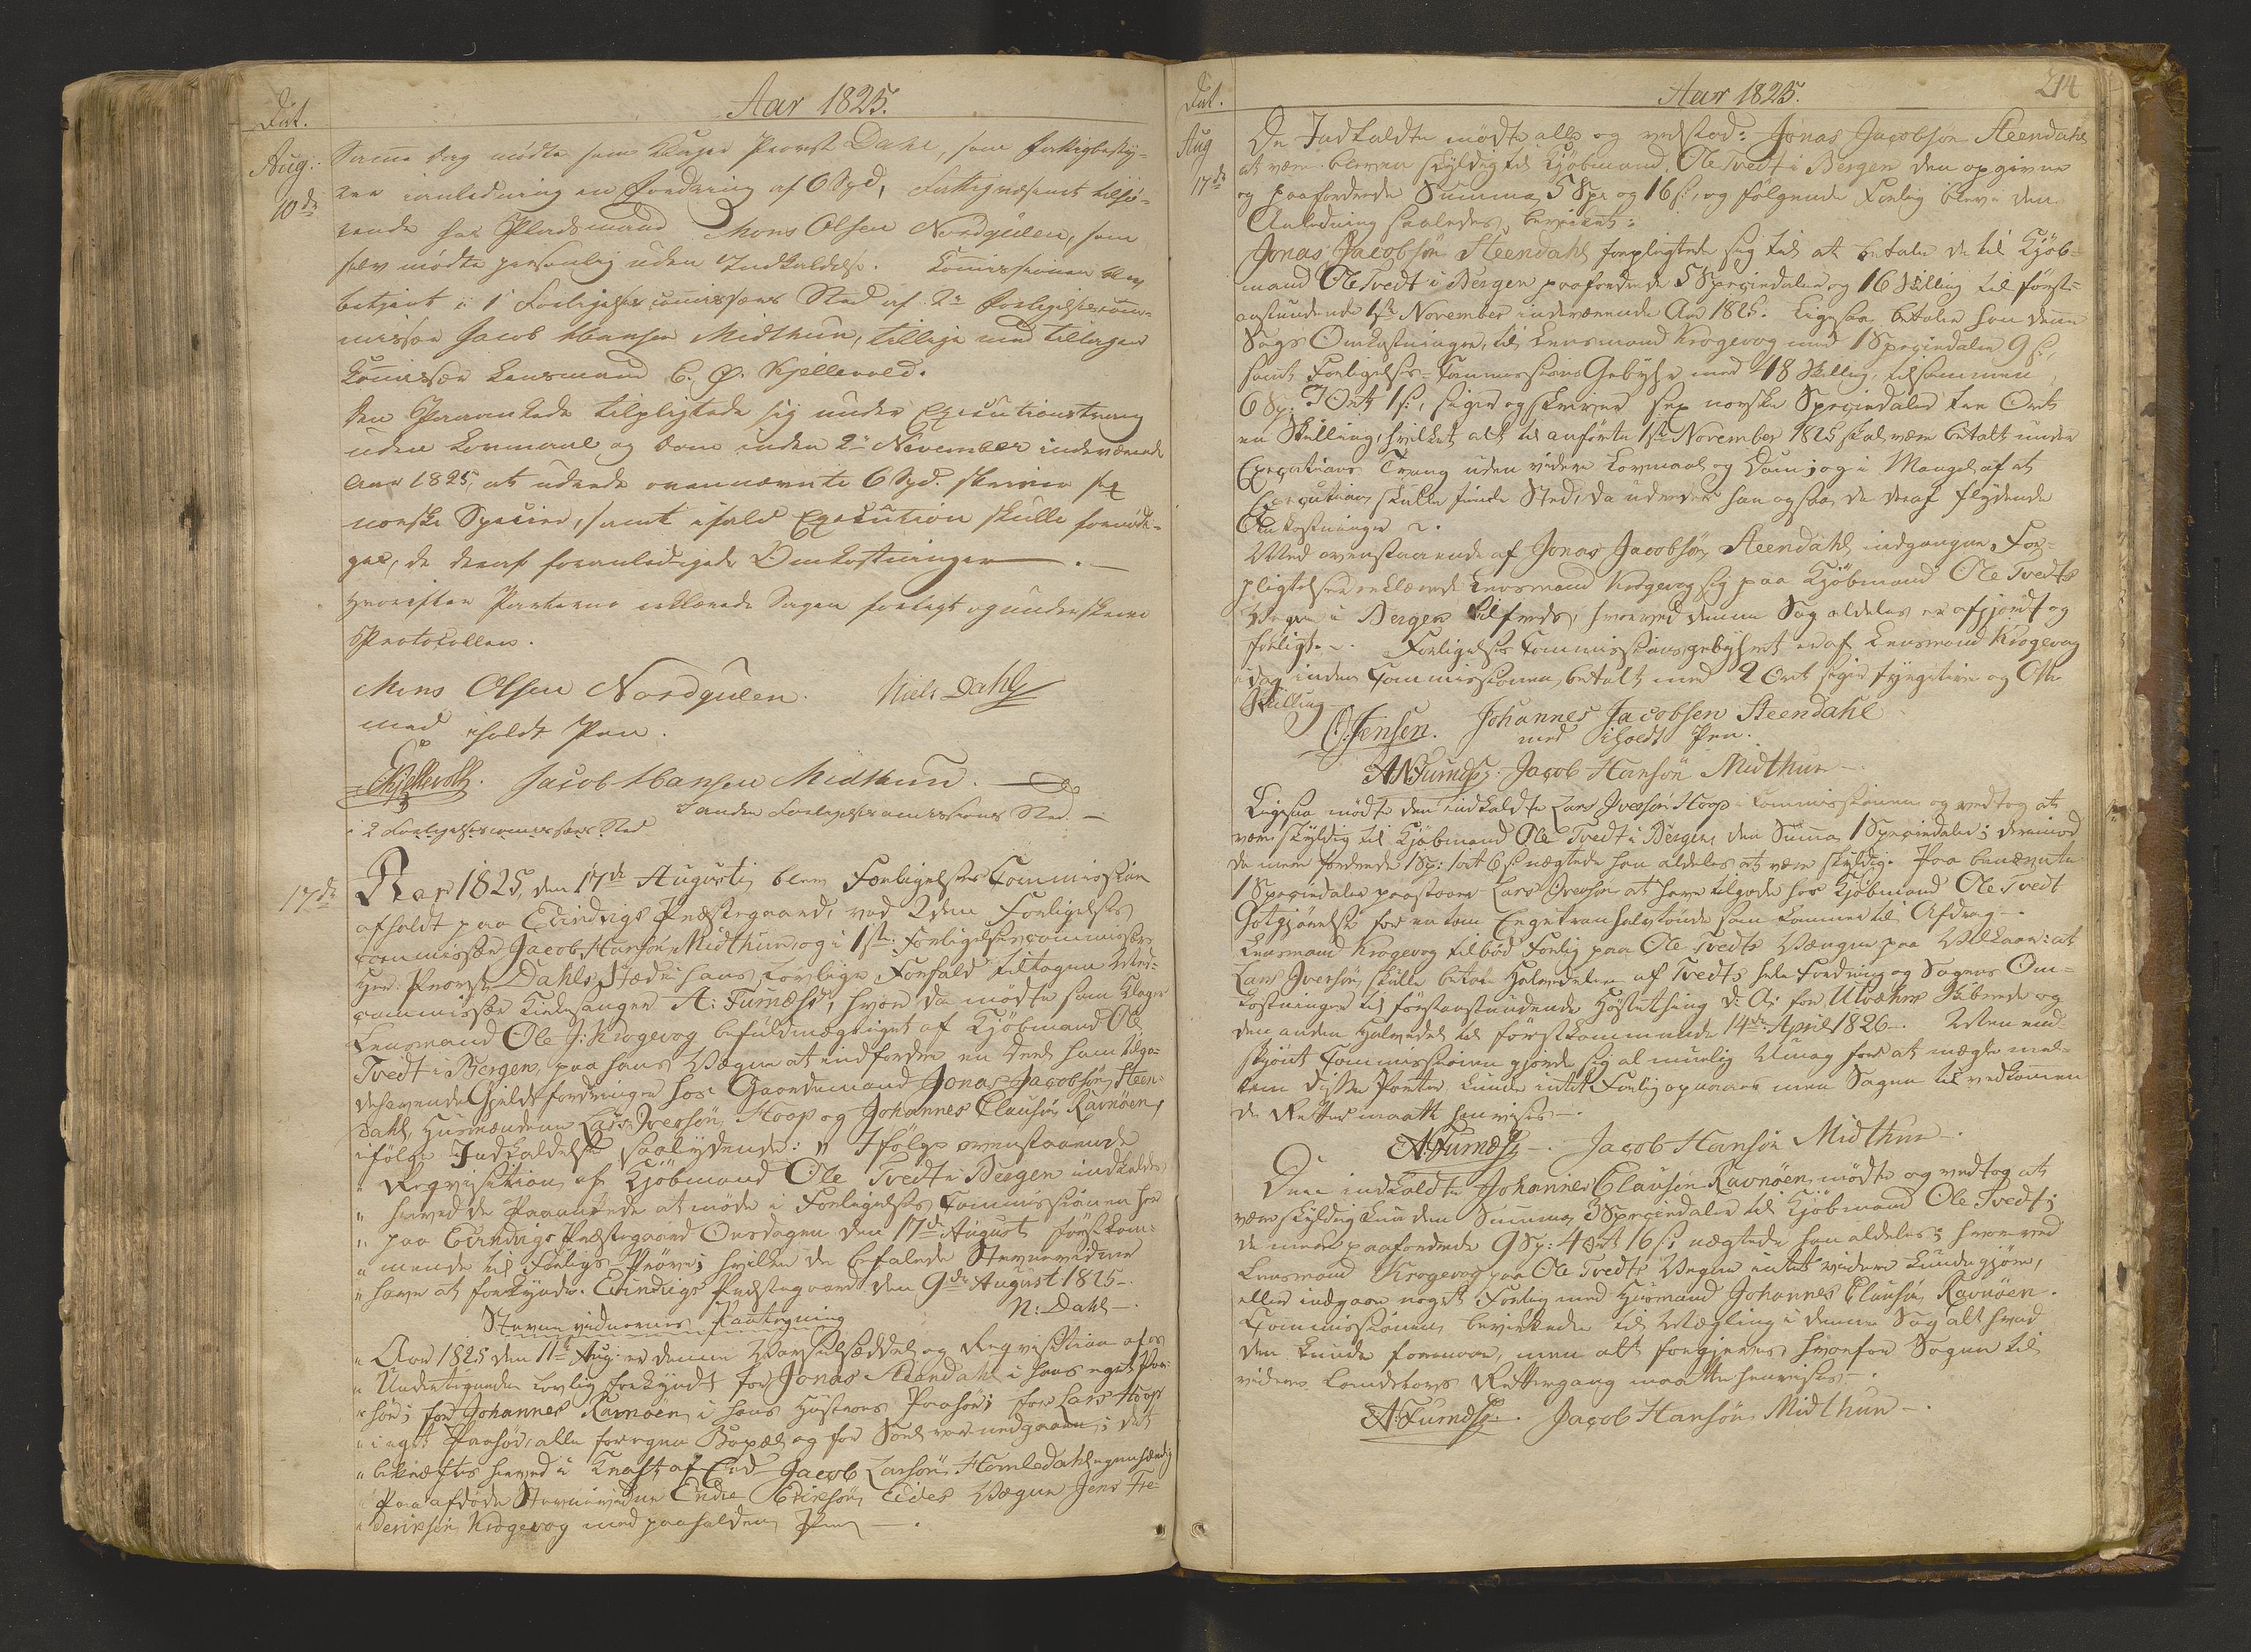 Dat.
Aar 1825.
Aug:
10de
Samme Dag mødte som Klager Provst Dahl, som Fattigbesty-
rer i anledning en Fordring af 6 Spd, Fattigvæsenet tilhø-
rende hos Pladsmand Mons Olsen Nordgulen, som
selv mødte personlig uden Indkaldelse. Commissionen blev
betjent i 1 Forligelsescommissairs Sted af 2n Forligelsescom-
missair Jacob Hansen Midthun, tillige med tiltagen
Commissær Lensmand E. Ø. Kjellevold.
Den Paaankede tilpligtede sig under Executionstvang
uden Lovmaal og Dom inden 2n November indeværende
Aar 1825, at udrede ovennævnte 6 Spd. skriver sex
norske Specier, samt ifald Execution skulle fornødi-
ges, de deraf foranledigede Omkostninger.
Hvorefter Parterne erklærede Sagen forligt og underskrev
Protocollen.
Mons Olsen Nordgulen. Niels Dahl
med iholdt Pen.
EKjellevold. Jacob Hansen Midthun.
i 2 Forligelsescommissairs Sted
17de
Aar 1825, den 17de Augusti, blev Forligelses Commission
afholdt paa Evindvigs Præstegaard, ved 2den Forligelses
commissær Jacob Hansøn Midthun, og i 1ste Forligelsescommissær
Her: Provst Dahls Stæd i hans lovlige Forfald tiltagne Med-
commissær Kirkesanger A: Furnæss, hvor da mødte som Klager
Lensmand Ole J: Krogevog befuldmægtiget af Kjøbmand Ole
Tvedt i Bergen, paa hans Vægne at indfordre en Deel ham tilgo-
dehavende Gjeldsfordringer hos Gaardemand Jonas Jacobsøn Steen-
dahl, Husmændene Lars Iversøn Hoop og Johannes Clausøn Ravnøen,
ifølge Indkaldelse saalydende: „ Ifølge ovenstaaende
„ Reqvisition af Kjøbmand Ole Tvedt i Bergen indkaldes
„ herved de Paaankede at møde i Forligelses Commissionen her
„ paa Evindvigs Præstegaard Onsdagen den 17de August førstkom-
„ mende til Forligs Prøve; hvilken de befalede Stevnevidner
„ have at forkynde. Evindvigs Præstegaard den 9de August 1825.
N: Dahl.
Stevnevidnernes Paategning
„ Aar 1825 den 11te Aug: er denne Varselseddel og Reqvisition af os
„ Undertegnede lovlig forkyndt for Jonas Steendahl i hans eget Paa-
„ hør; for Johannes Ravnøen i hans Hustrues Paahør; for Lars Hoop
„ i eget Paahør, alle for egen Bopæl og før Soels nedgaaen; det
„ bekræftes herved i Kraft af Eed Jacob Larsøn Homledahl egenhændig
„ Paa afdøde Stevnevidne Endre Erichsøn Eides Vægne Jens Fre-
„ deriksøn Krogevog med paaholden Pen.
Dat.
Aar 1825.
214
Aug
17de
De Indkaldte mødte alle og vedstod: Jonas Jacobsøn Steendahl
at være bleven skyldig til Kjøbmand Ole Tvedt i Bergen den opgivne
og paafordrede Summa 5 Spd og 16 s; og følgende Forlig blev i den
Anledning saaledes bevirket:
Jonas Jacobsøn Steendahl forpligtede sig til at betale de til Kjøb-
mand Ole Tvedt i Bergen paafordrede 5 Speciedaler og 16 Skilling til først-
anstundende 1ste November indeværende Aar 1825. Ligesaa betaler han denne
Sags Omkostninger til Lensmand Krogevog med 1 Speciedaler 9 s,
samt Forligelses-Commissions Gebyhr med 48 Skilling, tilsammen
6 Sp: 3 Ort 1 s, siger og skriver sex norske Speciedaler tre Ort
en Skilling, hvilket alt til anførte 1ste November 1825 skal være betalt under
Executions Tvang uden videre Lovmaal og Dom; og i Mangel af at
Execution skulle finde Sted, da udreder han ogsaa de deraf flydende
Omkostninger.
Med ovenstaaende af Jonas Jacobsøn Steendahl indgangne For-
pligtelser erklærede Lensmand Krogevog sig paa Kjøbmand Ole Tvedts
Vægne i Bergen tilfreds, hvorved denne Sag aldeles er afgjordt og
forligt. Forligelses Commissionsgebyhret er af Lensmand Krogevog
idag inden Commissionen betalt med 2 Ort siger fyrgetive og Otte
Skilling
OJensen. Johannes Jacobsen Steendahl
med iholdt Pen.
ANFurnæss. Jacob Hansøn Midthun.
Ligesaa mødte den indkaldte Lars Iversøn Hoop i Commissionen og vedtog at
være skyldig til Kjøbmand Ole Tvedt i Bergen den Summa 1 Speciedaler; derimod
de mere fordrede 1 Sp: 1 ort 6 s nægtede han aldeles at være skyldig. Paa benævnte
1 Speciedaler paastaaer Lars Iversøn at have tilgode hos Kjøbmand Ole Tvedt
Godtgjørelse for en tom Egetræes halvtønde som kommer til Afdrag.
Lensmand Krogevog tilbød Forlig paa Ole Tvedts Vængne paa Vilkaar: at
Lars Iversøn skulle betale Halvdelen af Tvedts hele Fordring og Sagens Om-
kostninger til førstanstundende Høstething d: A: for Utvæhr Skibrede og
den anden Halvedel til førstkommende 14de April 1826. Men end-
skjønt Commissionen gjorde sig al muelig Umag for at mægle mel-
lem disse Parter kunde intet Forlig opnaaes men Sagen til vedkommen
de Retter maatte henvises.
A:Furnæss. Jacob Hansøn Midthun.
Den indkaldte Johannes Clausøn Ravnøen mødte og vedtog at
være skyldig kun den Summa 3 Speciedaler til Kjøbmand Ole Tvedt;
de mere paafordrede 9 Sp: 4 Ort 16 s nægtede han aldeles; hvorved
Lensmand Krogevog paa Ole Tvedts Vægne intet videre kunde gjøre,
eller indgaae noget Forlig med Husmand Johannes Clausøn Ravnøen.
Commissionen bevirkede til Mægling i denne Sag alt hvad
den kunde formaae, men alt forgjeves hvorfor Sagen til
videre Landslovs Rettergang maatte henvises.
A:Furnæss. Jacob Hansøn Midthun.